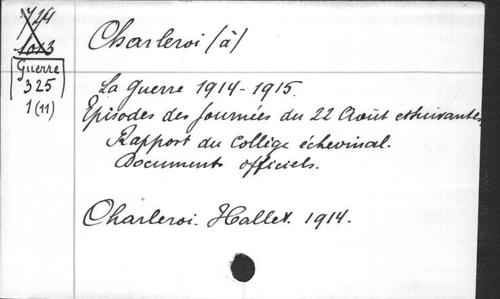 Charleroi (à)
Guerre
325
1 (11)
La Guerre 1914-1915.
Episodes des Journées du 22 Août et suivantes,
Rapport du Collège échevinal.
Documents officiels.
Charleroi. Hallet. 1914.